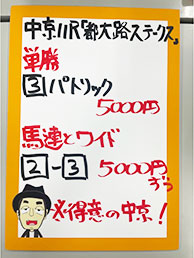 中京11R「都大路ステークス」
単勝
3 パトリック
5000円
馬連とワイド
2-3 5000円
ずつ
※得意の中京!